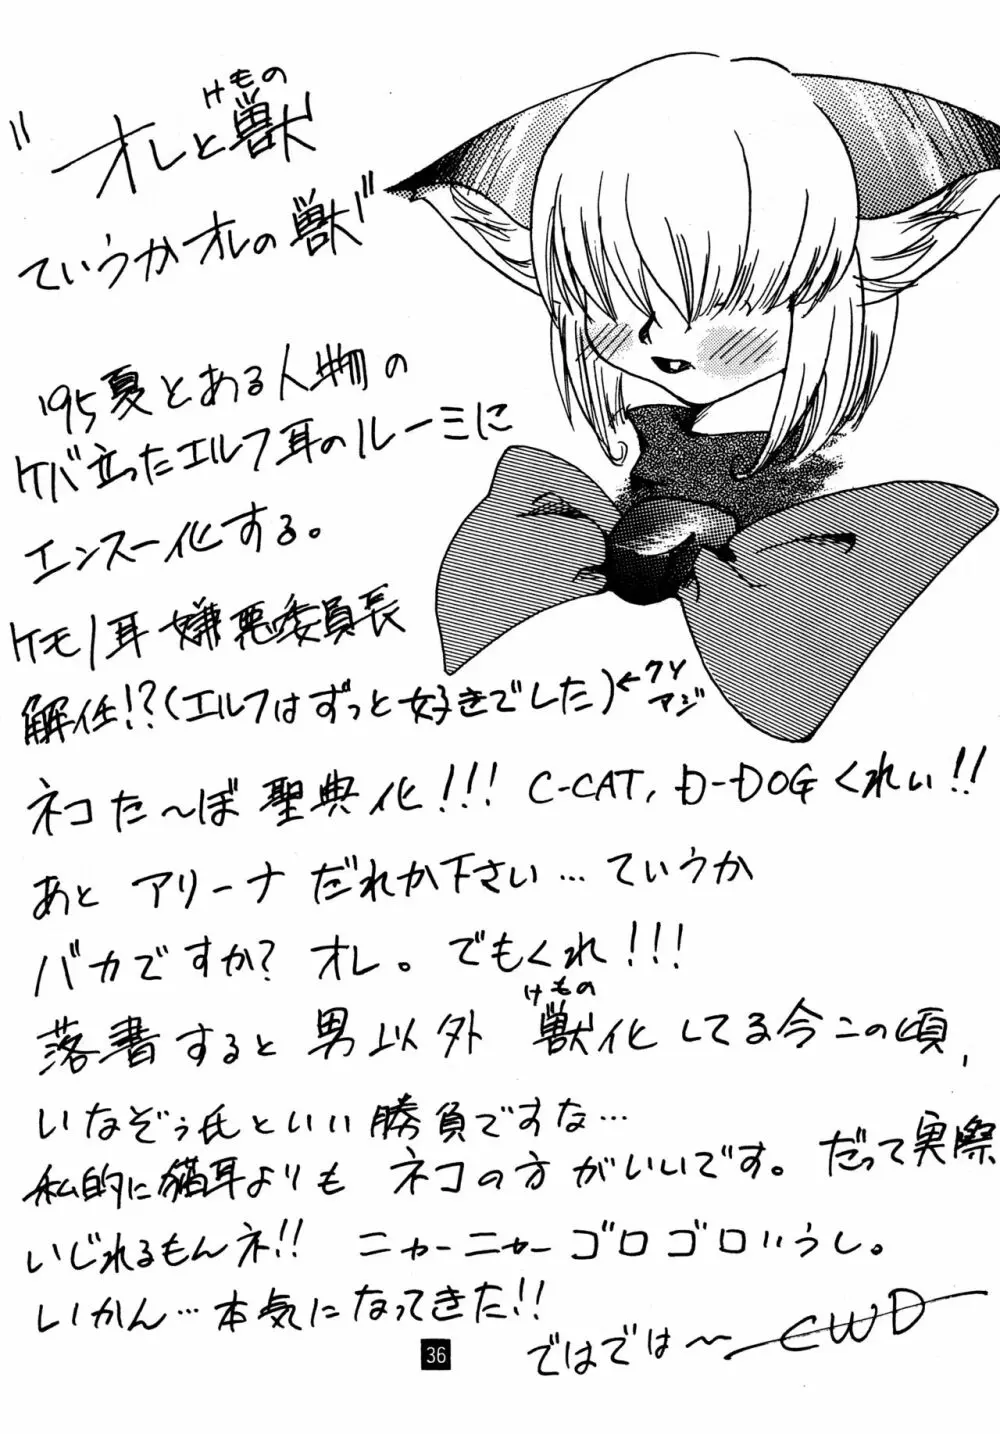 "オレと獣
けもの
ていうかオレの獣"
'95夏とある人物の
ケバ立ったエルフ耳のルーミに
エンスー化する。
ケモノ耳嫌悪委員長
解任!?(エルフはずっと好きでした)←クソ
マジ
ネコた〜ぼ聖典化!!! C-CAT, D-DOGくれい!!
あと アリーナ だれか下さい…ていうか
バカですか? オレ。でもくれ!!!
けもの
落書すると男以外 獣化してる今この頃,
いなぞぅ氏といい勝負ですな…
私的に猫耳よりも ネコの方がいいです。だって実際
いじれるもんネ!! ニャーニャーゴロゴロいうし。
いかん…本気になってきた!!
ではでは〜 CWD
36